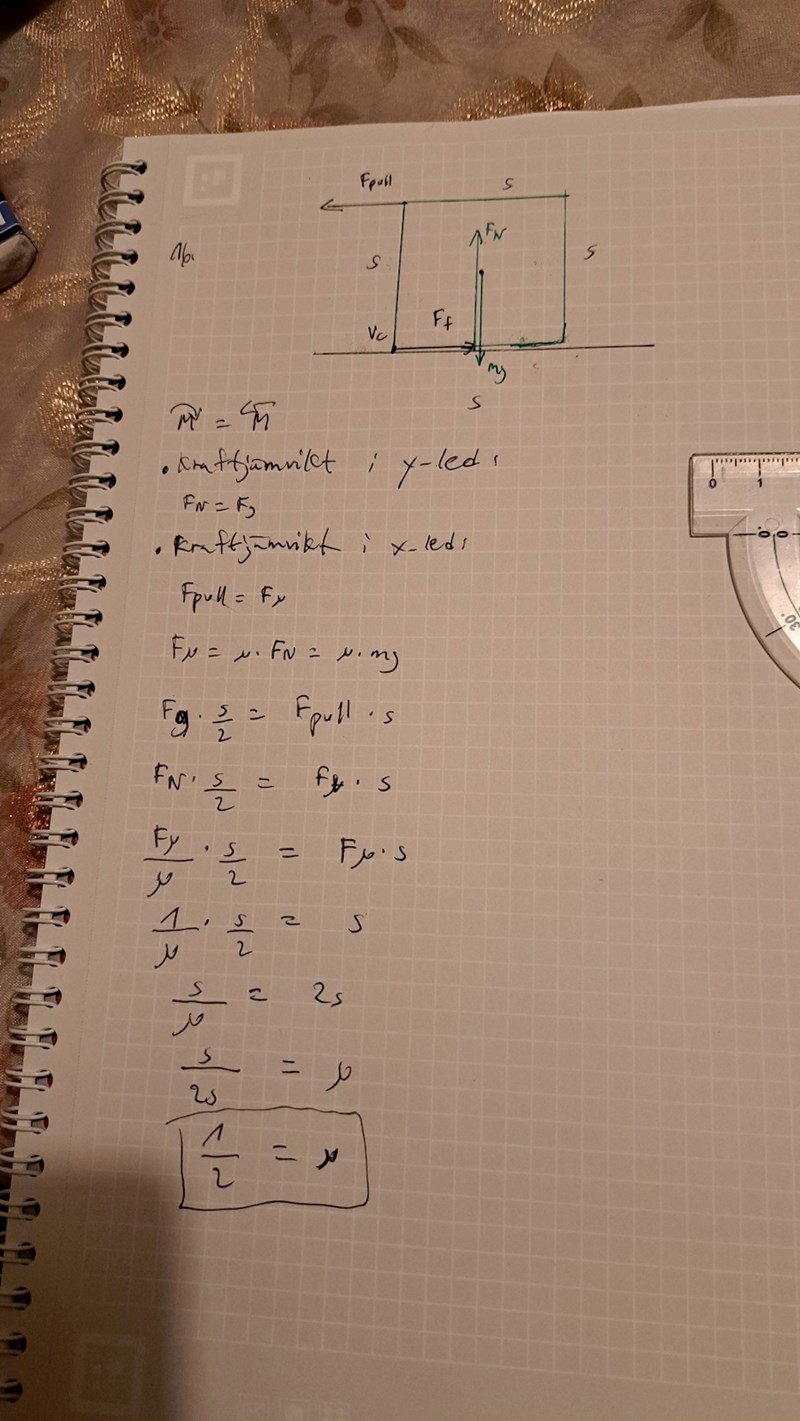 Fpull s
1b.
FN
s
s
Ff
Vc
mg
s
M = M
• Kraftjämvikt i y-led:
FN = Fg
• Kraftjämvikt i x-led:
Fpull = Fμ
Fμ = μ · FN = μ · mg
Fg · s/2 = Fpull · s
FN · s/2 = Fμ · s
Fμ/μ · s/2 = Fμ · s
1/μ · s/2 = s
s/μ = 2s
s/2s = μ
1/2 = μ
0 1
0
30°